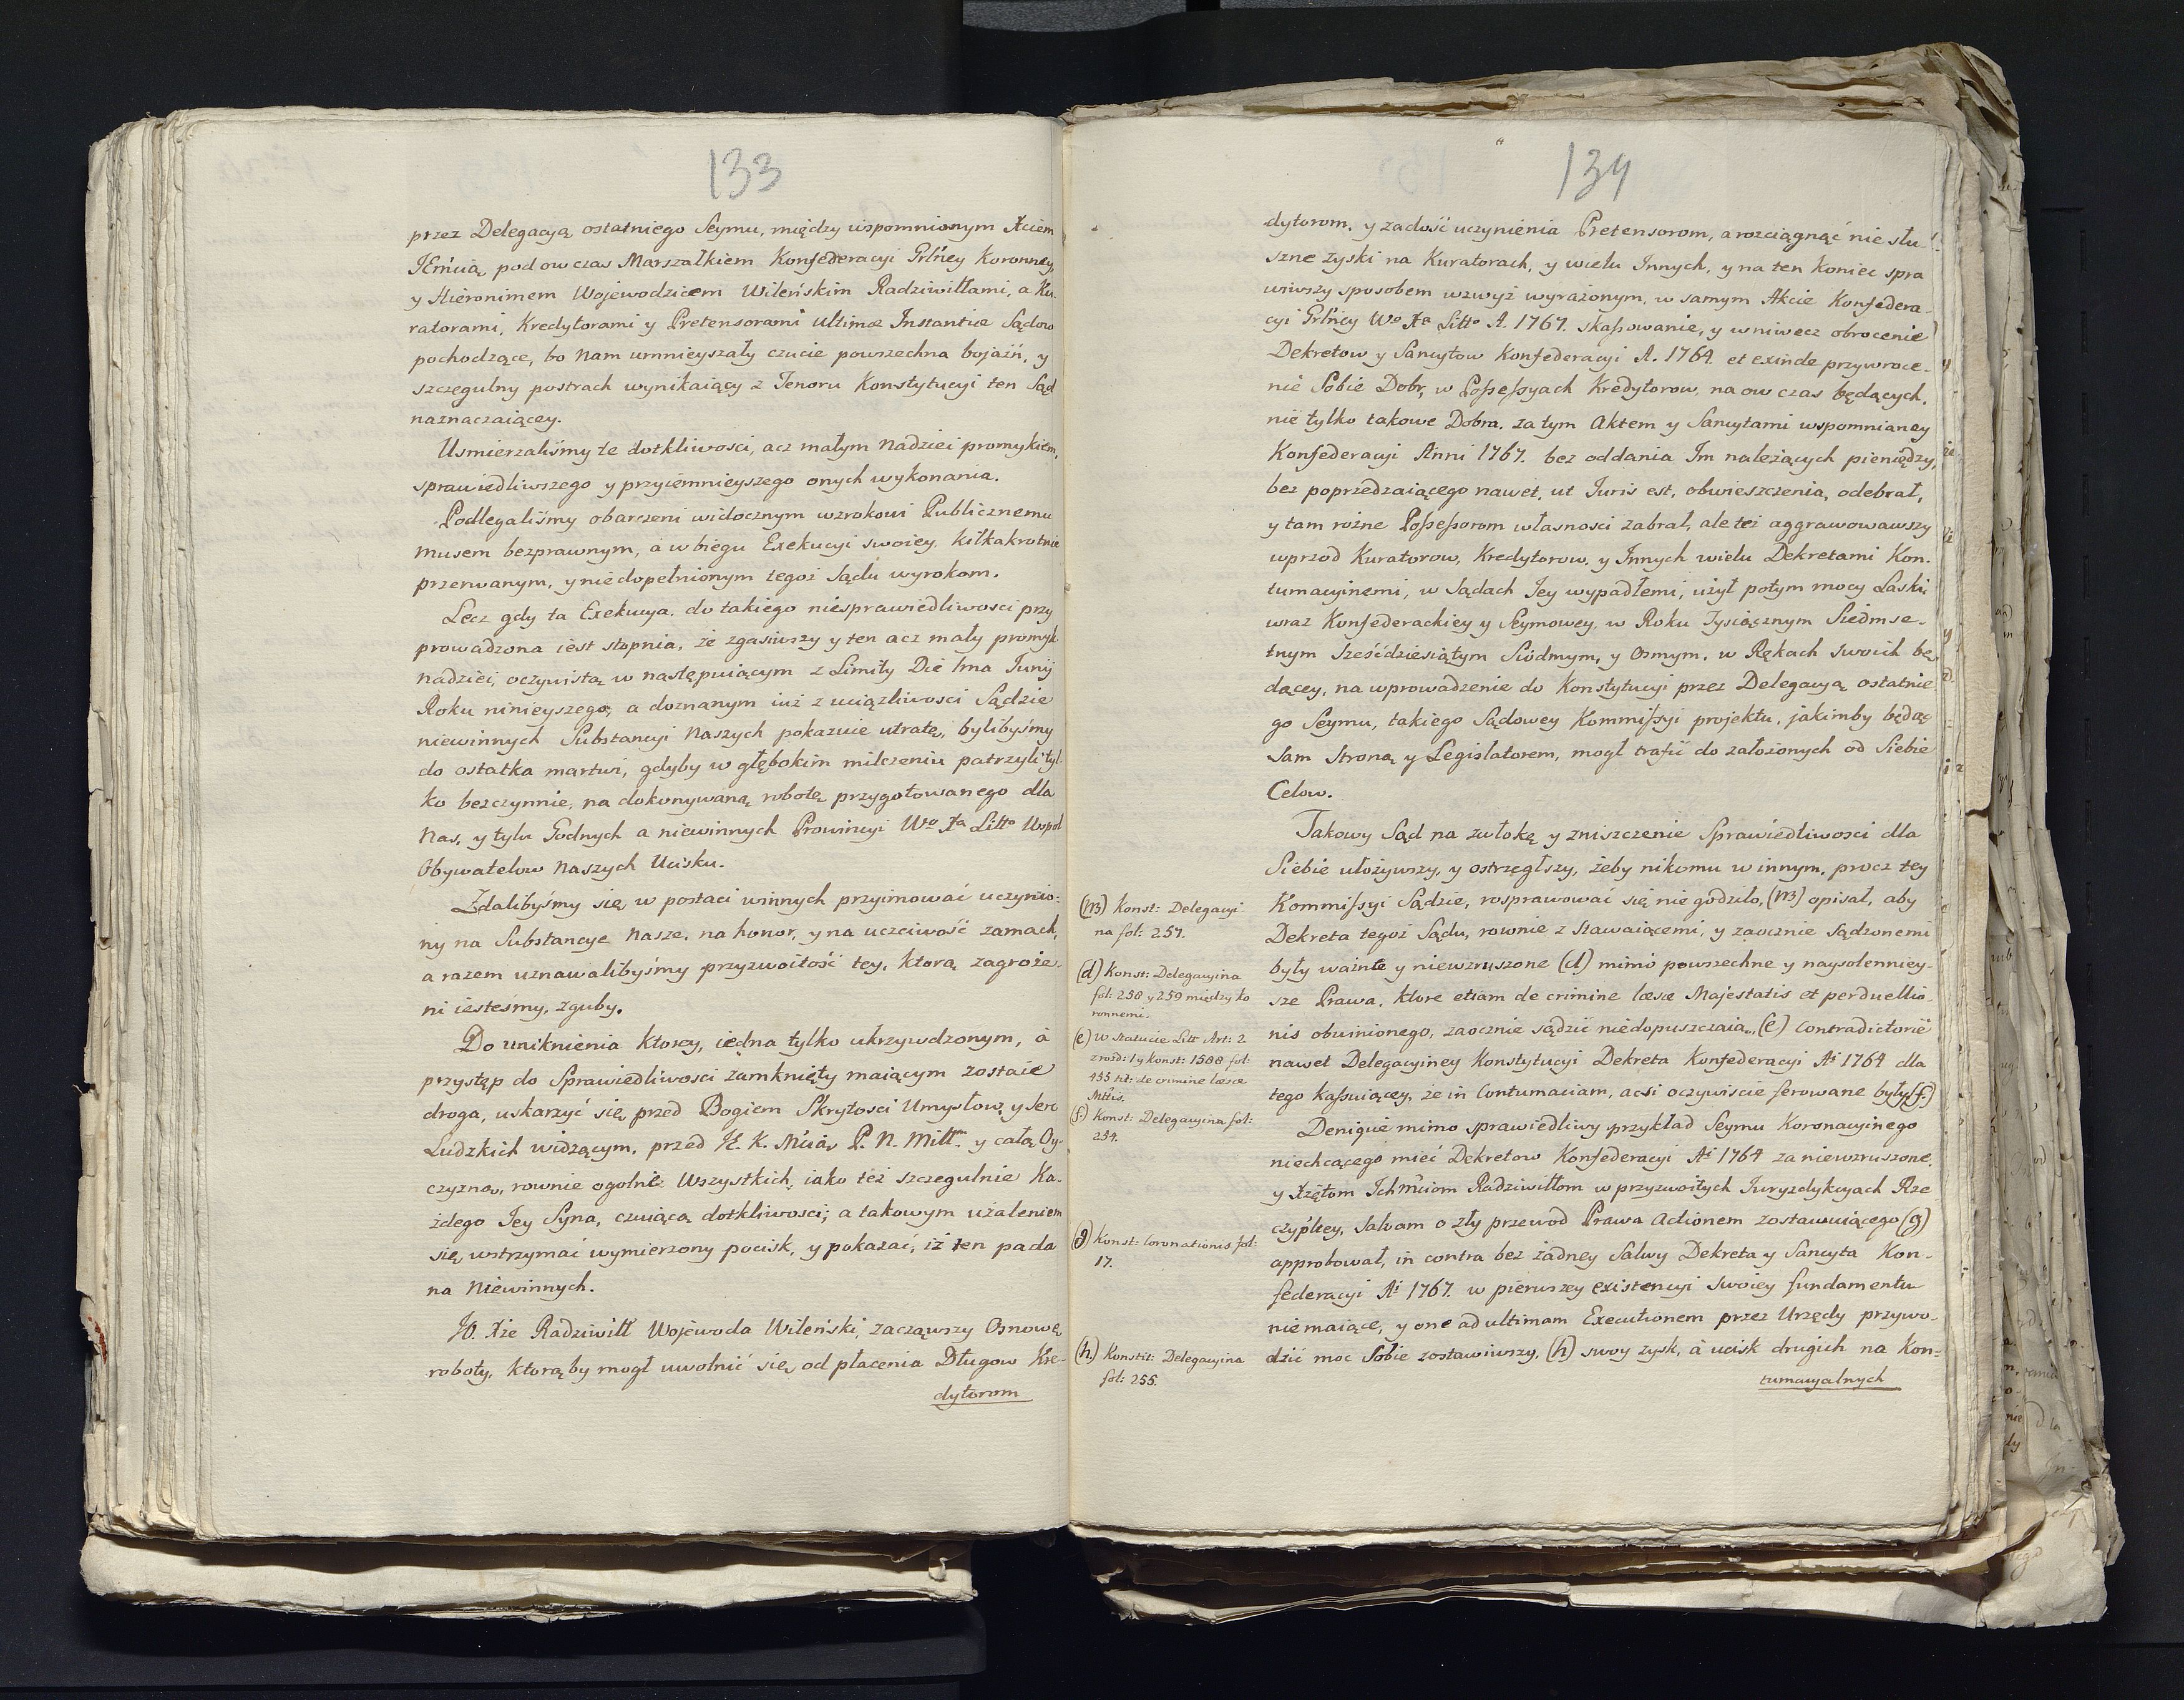 133
przez Delegacyą ostatniego Seymu, między wspomnionym Xciem
JEmcią, pod ow czas Marszałkiem Konfederacyi Grlney Koronney,
y Hieronimem Wojewodzicem Wileńskim Radziwiłłami, a Ku-
ratorami, Kredytorami y Pretensorami ultimæ Instantiæ Sądow
pochodzące, bo Nam umnieyszały czucie powszechna bojaźń, y
szczegulny postrach wynikaiący z Tenoru Konstytucyi ten Sąd
naznaczaiącey.
Usmierzaliśmy te dotkliwosci, acz małym Nadziei promykiem,
sprawiedliwszego y przyiemnieyszego onych wykonania.
Podlegaliśmy obarczeni widocznym wzrokowi Publicznemu
musem bezprawnym, à w biegu Exekucyi swoiey kilkakrotnie
przerwanym, y niedopełnionym tegoż Sądu wyrokom.
Lecz gdy ta Exekucya do takiego niesprawiedliwosci przy
prowadzona iest stopnia, że zgasiwszy y ten acz mały promyk
nadziei, oczywistą w następuiącym z Limity Die 1ma Junij
Roku ninieyszego, a doznanym iuż z uciązliwosci Sądzie
niewinnych Substancyi Naszych pokazuie utratę, bylibyśmy
do ostatka martwi, gdyby w głębokim milczeniu patrzyli tyl-
ko bezczynnie, na dokonywaną robotę przygotowanego dla
Nas, y tylu Godnych a niewinnych Prowincyi Wo Xa Litto Wspoł
Obywatelow Naszych Ucisku.
Zdalibyśmy się w postaci winnych przyimować uczynio-
ny na Substancye Nasze, na honor, y na uczciwość zamach,
a razem uznawalibyśmy przyzwoitość tey, ktorą zagroże-
ni iesteśmy, zguby.
Do uniknienia ktorey, iedna tylko ukrzywdzonym, à
przystęp do Sprawiedliwosci zamknięty maiącym zostaie
droga, uskarzyć się przed Bogiem Skrytosci Umysłow y Serc
Ludzkich widzącym, przed JE. K. Mcią P. N. Miłłm. y całą Oy-
czyzną, rownie ogolnie Wszystkich, iako też szczegulnie Ka-
żdego Jey Syna, czuiącą dotkliwosci; a takowym użaleniem
się, wstrzymać wymierzony pocisk, y pokazać, iż ten pada
na Niewinnych.
JO. Xże Radziwiłł Wojewoda Wileński, zacząwszy Osnowę
roboty, ktorąby mogł uwolnić się od płacenia Długow Kre-
dytorom
134
dytorom, y zadość uczynienia Pretensorom, a rozciągnąć nie słu-
szne zyski na Kuratorach, y wielu Innych, y na ten Koniec spra
wiwszy sposobem wzwyż wyrażonym, w samym Akcie Konfedera-
cyi Grlney Wo Xa Litto A. 1767. skassowanie, y wniwecz obrocenie
Dekretow y Sancytow Konfederacyi A. 1764 et exinde przywroce-
nie Sobie Dobr, w Possessyach Kredytorow, na ow czas będących,
nie tylko takowe Dobra, za tym Aktem y Sancytami wspomnianey
Konfederacyi Anni 1767. bez oddania Im należących pieniędzy,
bez poprzedzaiącego nawet, ut Juris est, obwieszczenia, odebrał,
y tam rożne Possessorom własnosci zabrał, ale też aggrawowawszy
wprzod Kuratorow, Kredytorow, y Innych wielu Dekretami Kon-
tumacyinemi, w Sądach Jey wypadłemi, użył potym mocy Laski
wraz Konfederackiey y Seymowey, w Roku Tysiącznym Siedmse-
tnym Sześćdziesiątym Siodmym, y Osmym, w Rękach swoich bę-
dącey, na wprowadzenie do Konstytucyi przez Delegacyą ostatnie
go Seymu, takiego Sądowey Kommissyi projektu, jakimby będąc
Sam Stroną y Legislatorem, mogł trafić do założonych od Siebie
Celow.
Takowy Sąd na zwłokę y zniszczenie Sprawiedliwosci dla
Siebie ułożywszy, y ostrzegłszy, żeby nikomu w innym, procz tey
Kommissyi Sądzie, rosprawować się nie godziło, (NB) opisał, aby
Dekreta tegoż Sądu, rownie z stawaiącemi, y zaocznie sądzonemi
były ważnte y niewzruszone (d) mimo powszechne y naysolenniey-
sze Prawa, ktore etiam de crimine læsæ Majestatis et perduellio-
nis obwinionego, zaocznie sądzić niedopuszczaią, (e) contradictorie
nawet Delegacyiney Konstytucyi Dekreta Konfederacyi Ai 1764 dla
tego kassuiącey, że in Contumaciam, acsi oczywiscie ferowane były (f.)
Denique mimo sprawiedliwy przykład Seymu Koronacyinego
niechcącego mieć Dekretow Konfederacyi Ai 1764 za niewzruszone,
y Xzętom Ichmciom Radziwiłłom w przyzwoitych Juryzdykcyach Rze
czyplcey, salvam o zły przewod Prawa Actionem zostawuiącego (g)
approbował, in contra bez żadney Salwy Dekreta y Sancyta Kon-
federacyi Ai 1767. w pierwszey existencyi swoiey fundamentu
niemaiące, y one ad ultimam Executionem przez Urzędy przywo-
dzić moc Sobie zostawiwszy, (h) swoy zysk, à ucisk drugich na Kon=
tumacyalnych
(NB) Konst: Delegacyi-
na fol: 257.
(d) Konst: Delegacyina
fol: 258 y 259 między ko
ronnemi.
(e) w Statucie Litt Art: 2
zrozd: 1 y Konst: 1588 fol:
455 tit: de crimine læsæ
Mttis.
(f) Konst: Delegacyina fol:
254.
(g) Konst: Coronationis fol:
17.
(h.) Konstit: Delegacyina
fol: 255.